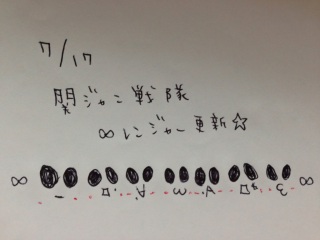 7/17
関ジャニ戦隊
∞レンジャー更新☆
∞ ∞